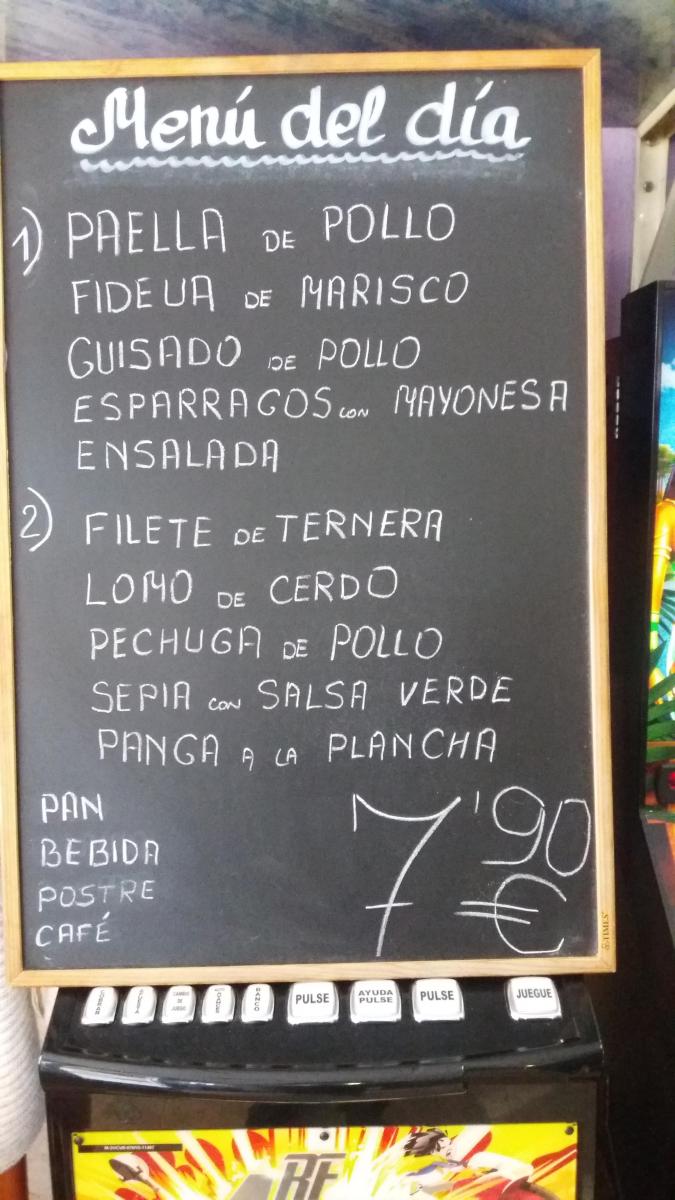 Menú del día
1) PAELLA DE POLLO
FIDEUA DE MARISCO
GUISADO DE POLLO
ESPARRAGOS con MAYONESA
ENSALADA
2) FILETE DE TERNERA
LOMO DE CERDO
PECHUGA DE POLLO
SEPIA con SALSA VERDE
PANGA A LA PLANCHA
PAN
BEBIDA
POSTRE
CAFÉ
7'90
€
TIMES
COBRAR
CAMBIO DE JUEGO
BANCO
PULSE
AYUDA PULSE
PULSE
JUEGUE